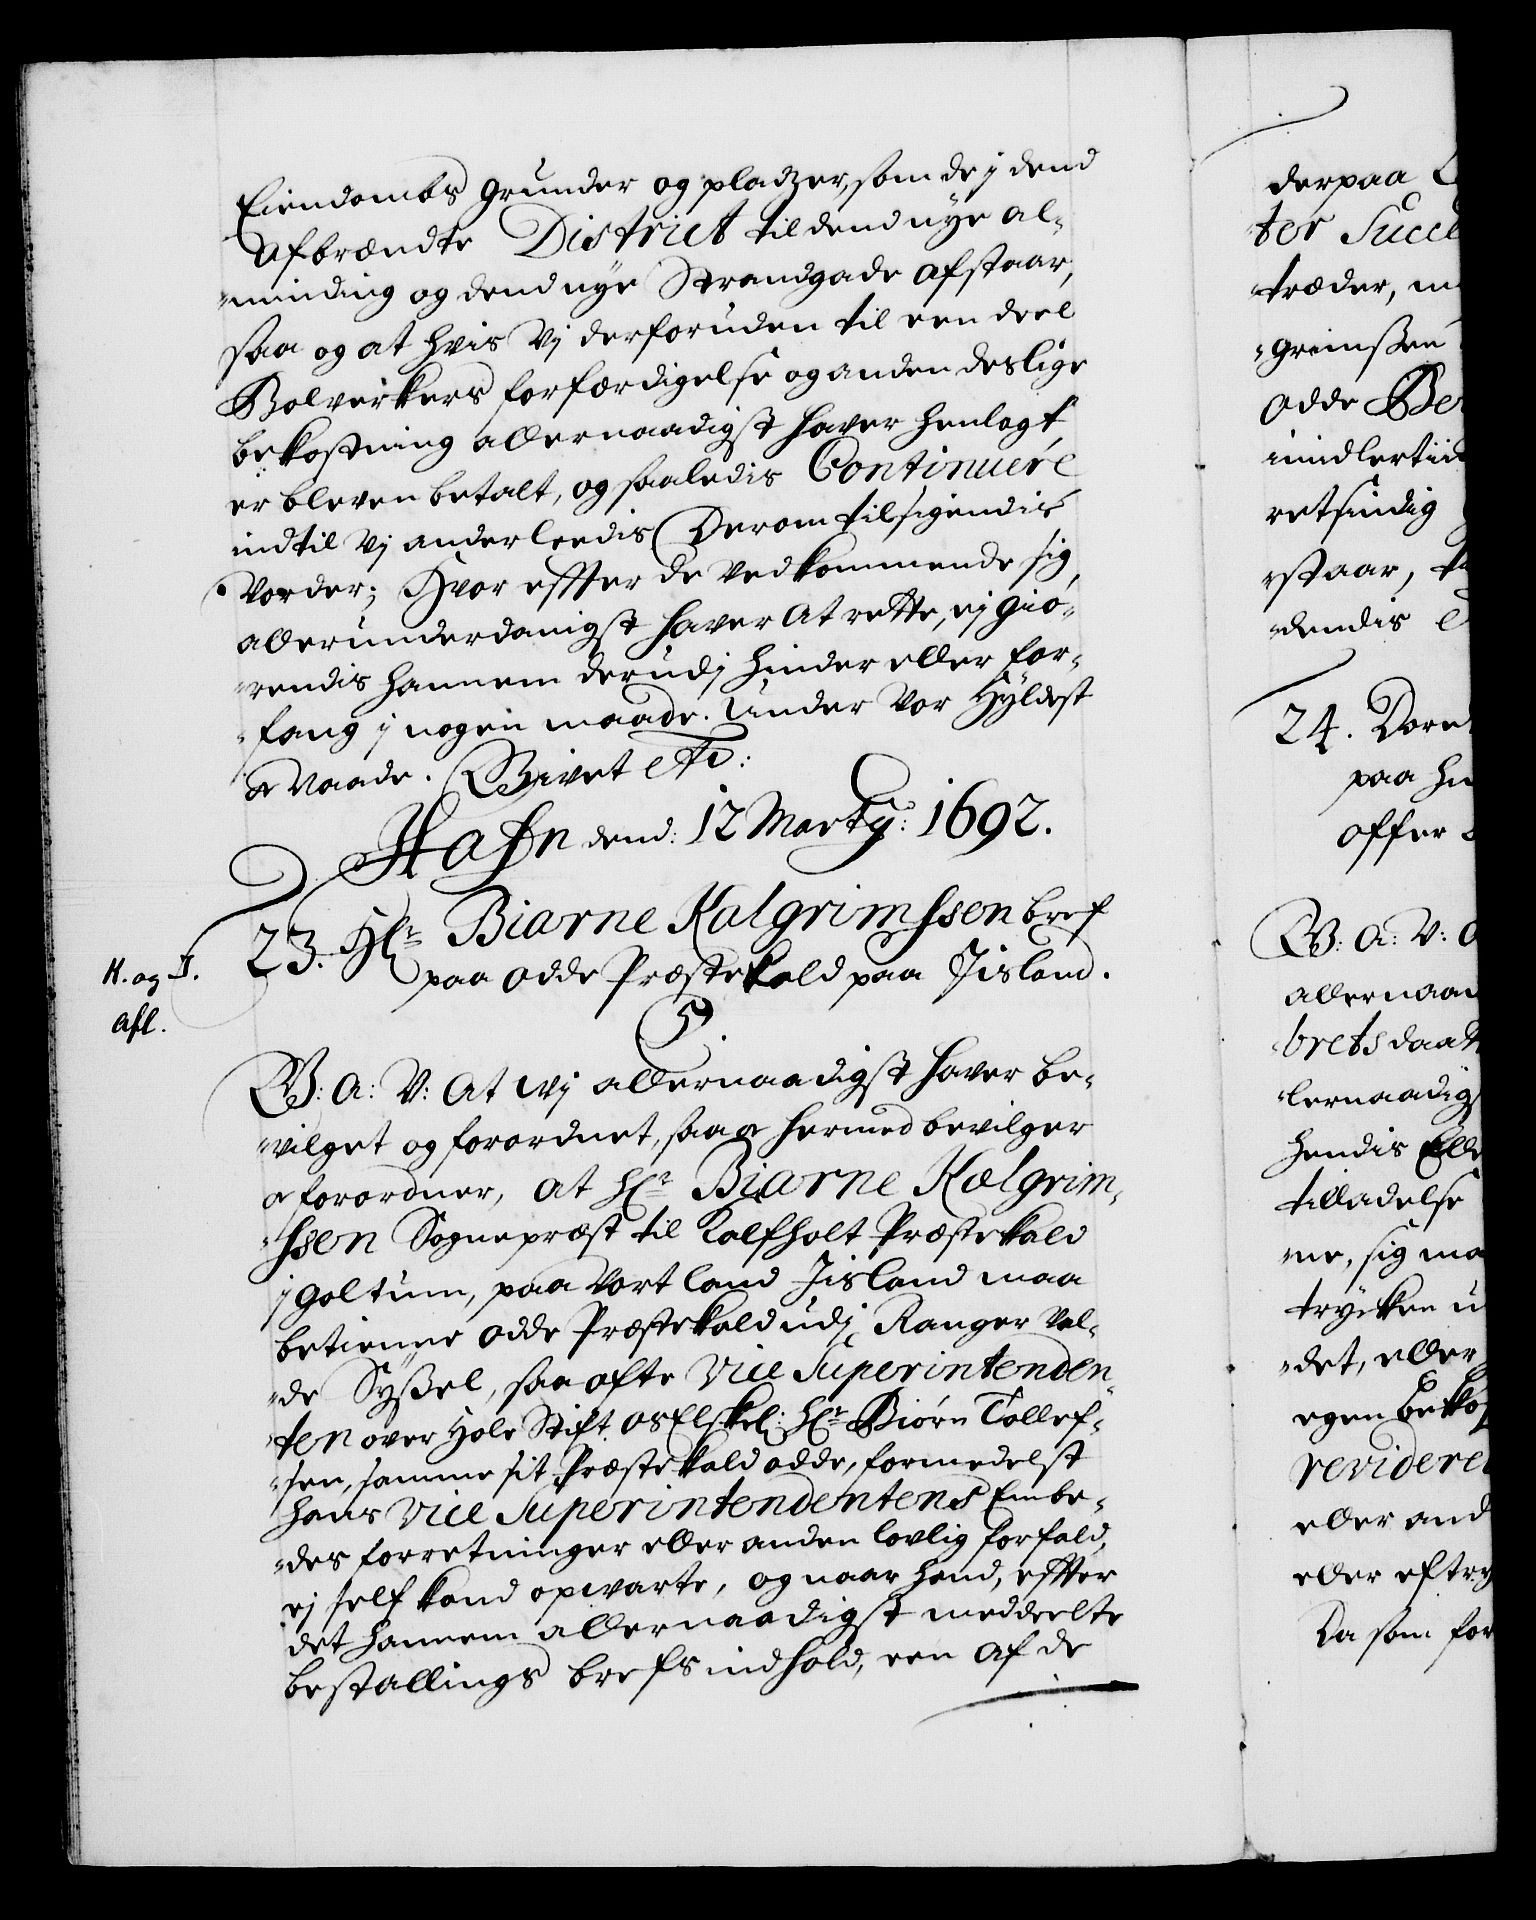 Eiendombs grunder og pladzer, som de j dend
afbrændte District til dend nye al-
minding og dend nye Strandgade afstaar,
saa og at hvis Vj derforuden til een deel
Bolverkers forfærdigelse og anden deslige
bekostning allernaadigst haver henlagt,
er bleven betalt, og saaledis Continuere
indtil Vj anderleedis Derom tilsigendis
Vorder; Hvor effter de Vedkommende sig
allerunderdanigst haver At rette, ej giö-
rendis hannem derudj hinder eller for-
fang j nogen maade. Under Vor Hyldest
& Naade. Givet etc:
Hafn dend: 12 Martij: 1692.
23. Hr Biarne Halgrimssen bref
paa Odde Præstekald paa Jisland.
K. og I.
afl.
5.
G: A: V: At wj allernaadigst haver be-
vilget og forordnet, saa & hermed bevilger
& forordner, at Hr Biarne Halgrim-
ssen Sognepræst til Kalfholt Præstekald
j Holtum, paa Vort land Jisland maa
betienne Odde Præstekald udj Ranger Val-
de Syssel, saa ofte Vice Superintenden
ten over Hole Stift, Os Elskel: Hr Biörn Tollef-
sen, samme sit Præstekald Odde, formedelst
hans Vice Superintendentens Embe-
des forretninger eller anden lovlig forfald,
ej self kand opwarte, og naar hand, effter
det hannem allernaadigst meddeelte
bestallings brefs indhold, een af de
derpaa
ter Succe
træder, m
grimssen
Odde Be
imidlertiid
retsindig
staar,
dendis
24. Dore
paa hu
offer
G: A: V:
allernaa
brets daat
lernaadigs
hendis Elle
tilladelse
me, sig ma
trycken u
det, eller
egen bekos
revidere
eller and
eller eftry
Da som for